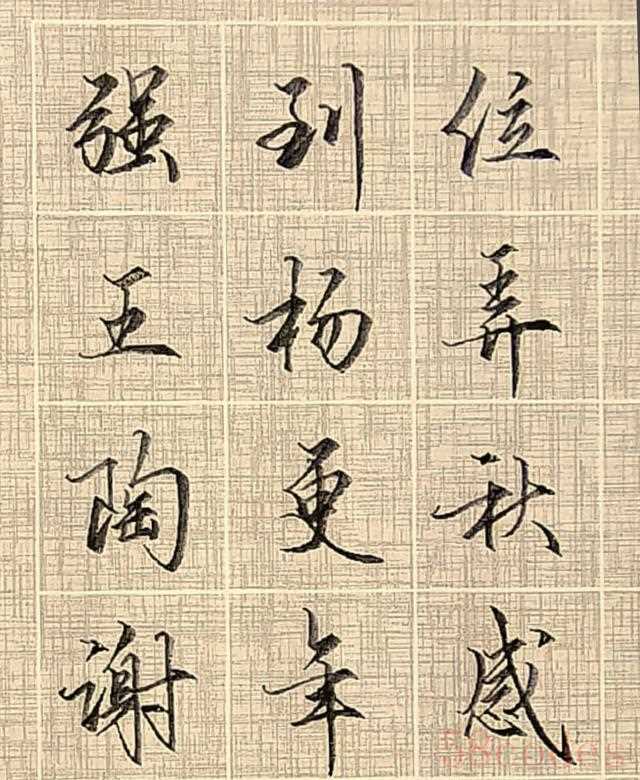 强到位
王杨弄
陶更秋
谢年感